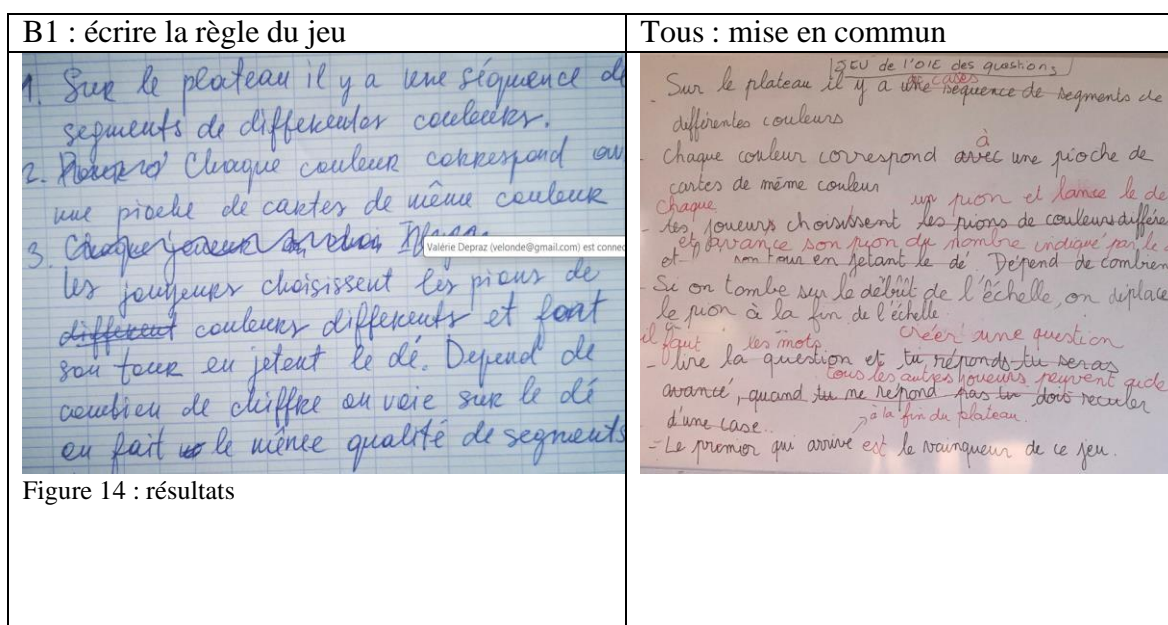 B1 : écrire la règle du jeu
1. Sur le plateau il y a une séquence de
segments de differentes couleurs.
2. Chaque couleur correspond au
une pioche de cartes de même couleur
3. Chaque joueur
Valérie Depraz (velonde@gmail.com) est connec
les joujeurs choisissent les pions de
different couleurs differents et font
son tour en jetent le dé. Depend de
combien de chiffre on voie sur le dé
on fait le mênce qualité de segments
Figure 14 : résultats
Tous : mise en commun
JEU de l'OIE des questions
cases
- Sur le plateau il y a une séquence de segments de
différentes couleurs
à
- chaque couleur correspond avec une pioche de
cartes de même couleur
chaque un pion et lance le dé
- les joueurs choisissent les pions de couleurs différe
et avance son pion du nombre indiqué par le
et son tour en jetant le dé Dépend de combien
- Si on tombe sur le début de l'échelle, on déplace
le pion à la fin de l'échelle
il faut les mots créer une question
- lire la question et tu réponds tu seras
tous les autres joueurs peuvent aide
avancé, quand tu ne répond pas tu dois reculer
d'une case.. à la fin du plateau.
- Le premier qui arrive est le vainqueur de ce jeu.